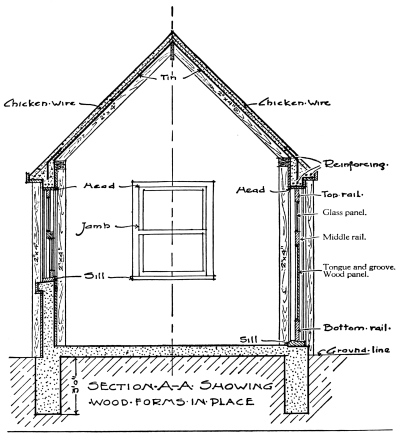 Tin
Chicken-Wire
Chicken-Wire
Reinforcing.
Head
Head
Top-rail.
Glass panel.
Jamb
Middle rail.
2"x4"
2"x4"
Sill
Tongue and groove.
Wood panel.
Bottom-rail.
Sill
Ground-line
SECTION-A-A SHOWING
WOOD-FORMS-IN PLACE